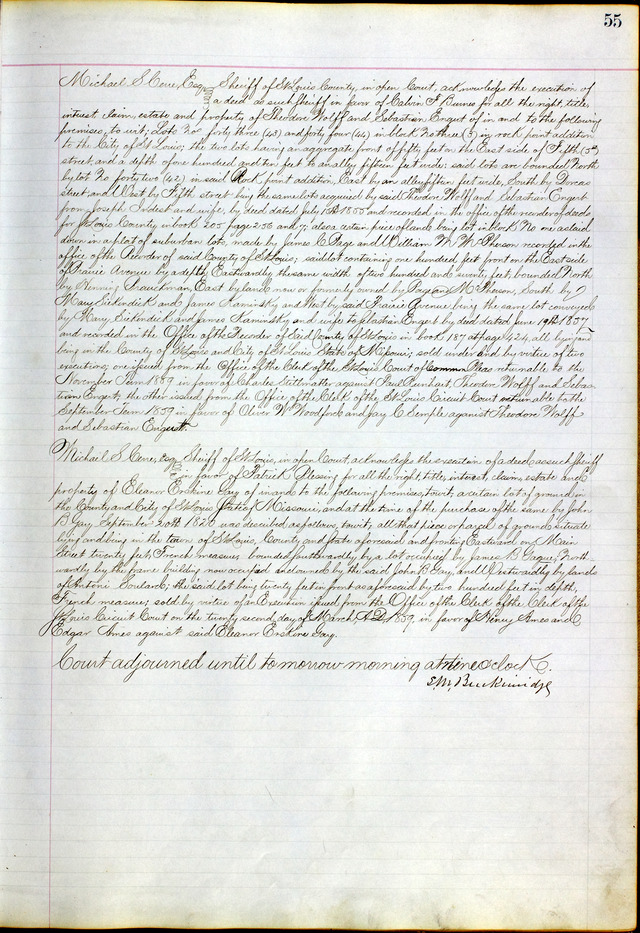 55
Michael S. Cerre, Esq. Sheriff of St Louis County, in open Court, acknowledges the execution of
a deed as such Sheriff in favor of Calvin F Burnes for all the right, title,
interest claim, estate and property of Theodore Wolff and Sebastian Engert of in and to the following
premises to wit; Lots No forty three (43) and forty four (44) in block No three (3) in rock point addition
to the City of St Louis; the two lots having an aggregate front of fifty feet on the East side of Fifth (5th)
street, and a depth of one hundred and ten feet to an alley fifteen feet wide; said lots are bounded North
by lot No forty two (42) in said Rock point addition, East by an alley fifteen feet wide, South by Dorcas
Street and West by Fifth street being the same lots acquired by said Theodore Wolff and Sebastian Engert
from Joseph and wife, by deed dated July 1855 and recorded in the office of the recorder of deeds
for St Louis County in book 205 page 256 and 7; also a certain piece of land being lot in block No one as laid
down in a plat of suburban lots, made by James C Page and William M McPherson recorded in the
office of the Recorder of said County of St Louis; said lot containing one hundred feet front on the East side
of Prairie Avenue by a depth Eastwardly the same width of two hundred and twenty feet, bounded North
by Henning East by land now or formerly owned by Page and McPherson, South by
Mary Sickendick and James Kaminsky and West by said Prairie Avenue being the same lot conveyed
by Mary Sickendick and James Kaminsky and wife to Sebastian Engert by deed dated June 19th 1857
and recorded in the Office of the Recorder of Said County of St Louis in book 187 at page 424, all lying and
being in the County of St Louis and City of St Louis State of Missouri; sold under and by virtue of two
executions; one issued from the Office of the Clerk of the St Louis Court of Common Pleas returnable to the
November Term 1859 in favor of Charles against Paul Theodor Wolff and Sebas-
tian Engert; the other issued from the Office of the Clerk of the St Louis Circuit Court returnable to the
September Term 1859 in favor of Oliver W Woodford and Jay C Semple against Theodore Wolff
and Sebastian Engert.
Michael S. Cerre, Esq. Sheriff of St Louis, in open Court, acknowledges the execution of a deed as such Sheriff
in favor of Patrick Plessing for all the right, title, interest, claim, estate and
property of Eleanor Erskine Gay of in and to the following premises, towit; a certain lot of ground in
the County and City of St Louis State of Missouri, and at the time of the purchase of the same by John
B Gay September 20th 1828 was described as follows, towit; all that piece or parcel of ground situate
lying and being in the town of St Louis, County and State aforesaid and fronting Eastward on Main
Street twenty feet, French measure bounded Southwardly by a lot occupied by James B North-
wardly by the frame building now occupied and owned by the said John B Gay, and Westwardly by lands
of Antoni Soulard; the said lot being twenty feet in front as aforesaid by two hundred feet in depth,
French measure; sold by virtue of an Execution issued from the Office of the Clerk of the Clerk of the
St Louis Circuit Court on the twenty second day of March A.D. 1859, in favor of Henry Ames and
Edgar Ames against said Eleanor Erskine Gay.
Court adjourned until tomorrow morning at nine o'clock.
S. M. Breckinridge